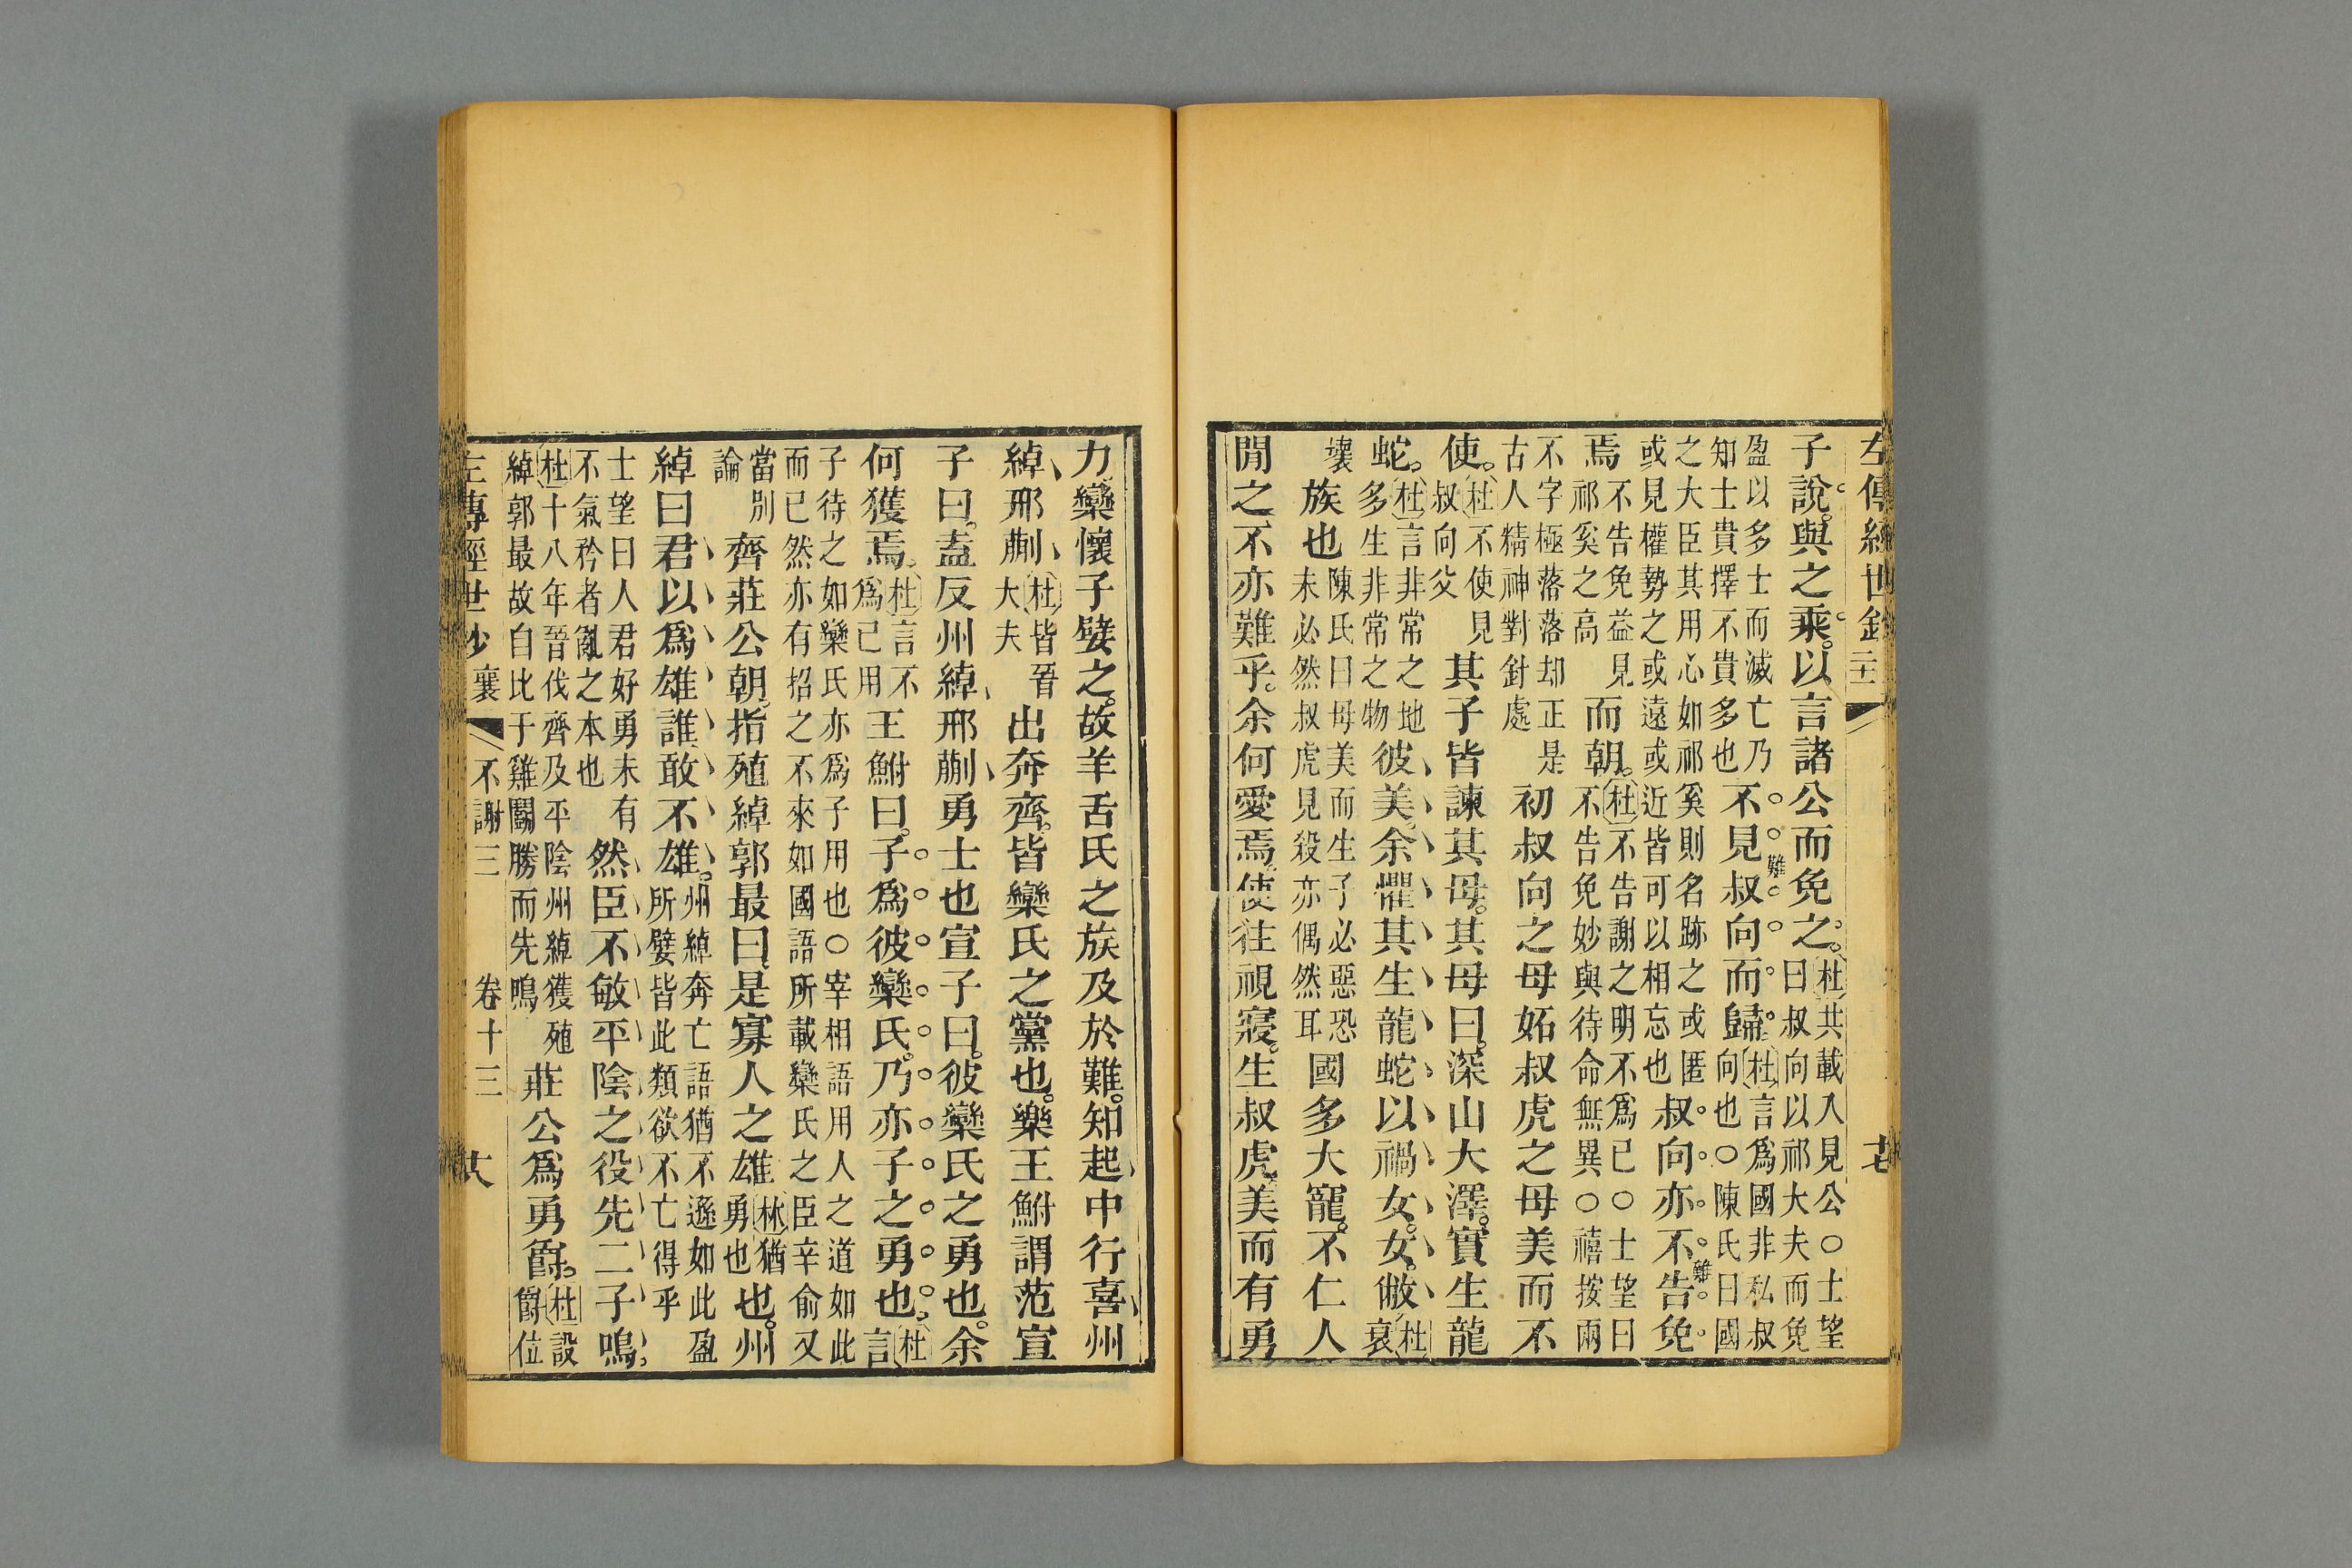 左傳經世鈔
子說與之乘以言諸公而免之杜共載入見公○士望曰叔向以祁大夫而免
盈以多士而滅亡乃知士貴擇不貴多也不見叔向而歸難杜言爲國非私叔向也○陳氏曰國
之大臣其用心如祁奚則名跡之或匿或見權勢之或遠或近皆可以相忘也叔向亦不告免難
焉不告免益見祁奚之高而朝杜不告謝之明不爲已○士望曰不告免妙與待命無異○禧按兩
不字極落落却正是古人精神對針處初叔向之母妬叔虎之母美而不
使杜不使見叔向父其子皆諫其母其母曰深山大澤實生龍
蛇杜言非常之地多生非常之物彼美余懼其生龍蛇以禍女女敝杜衰
壞族也陳氏曰母美而生子必惡恐未必然叔虎見殺亦偶然耳國多大寵不仁人
閒之不亦難乎余何愛焉使往視寢生叔虎美而有勇
力欒懷子嬖之故羊舌氏之族及於難知起中行喜州
綽邢蒯杜皆晉大夫出奔齊皆欒氏之黨也樂王鮒謂范宣
子曰盍反州綽邢蒯勇士也宣子曰彼欒氏之勇也余
何獲焉杜言不爲已用王鮒曰子爲彼欒氏乃亦子之勇也杜言
子待之如欒氏亦爲子用也○宰相語用人之道如此而已然亦有招之不來如國語所載欒氏之臣辛俞又
當別論齊莊公朝指殖綽郭最曰是寡人之雄林猶勇也也州
綽曰君以爲雄誰敢不雄州綽奔亡語猶不遜如此盈所嬖皆此類欲不亡得乎
士望曰人君好勇未有不氣矜者亂之本也然臣不敏平陰之役先二子鳴
杜十八年晉伐齊及平陰州綽獲殖綽郭最故自比于雞鬭勝而先鳴莊公爲勇爵杜設爵位
左傳經世鈔襄 不謝三 卷十三